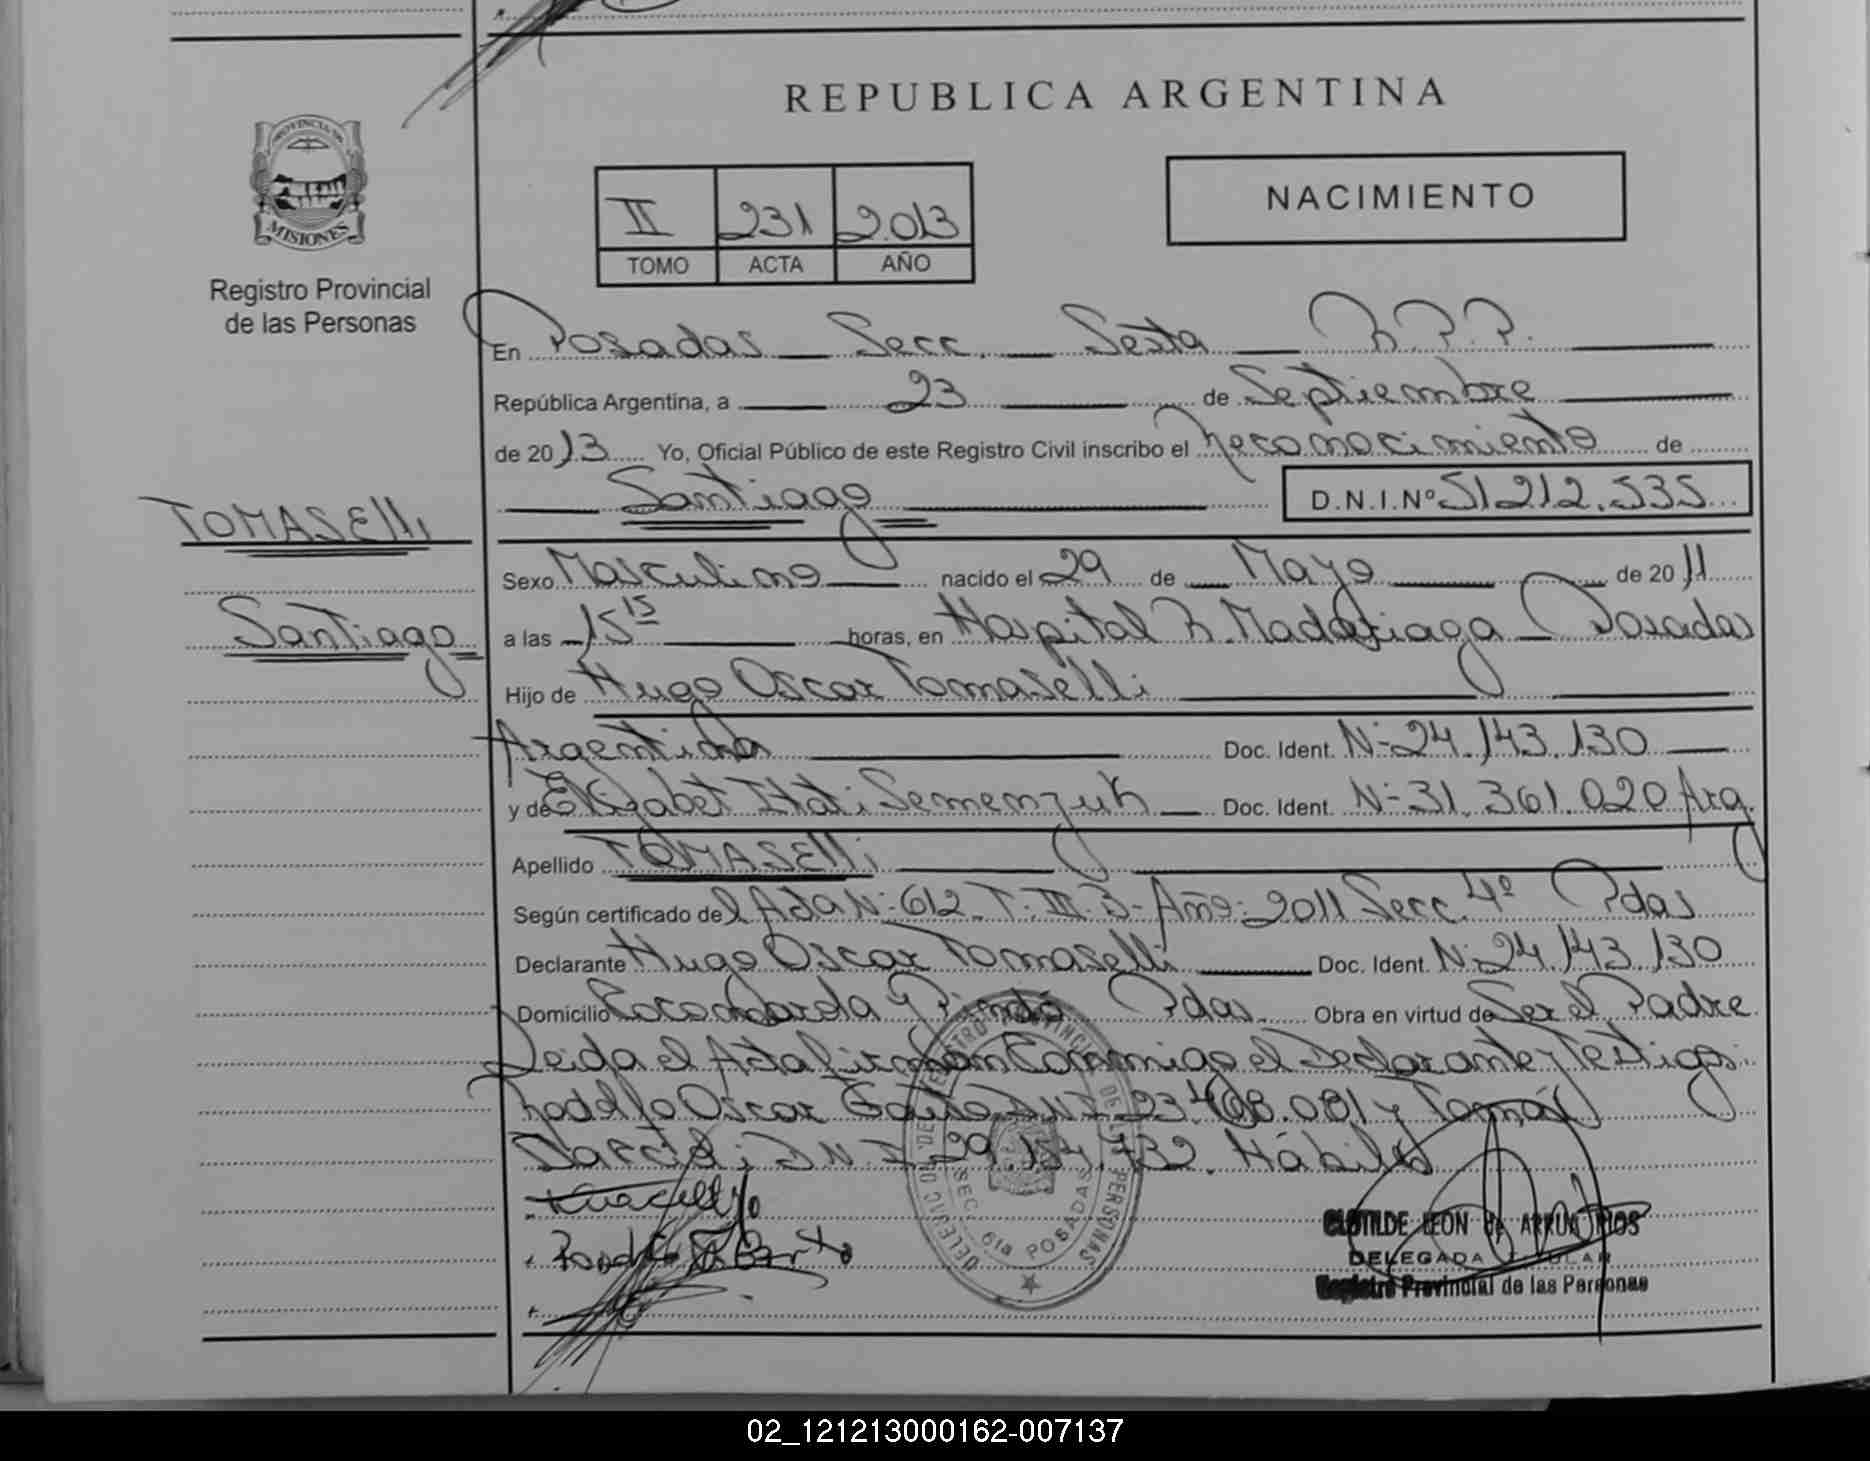 REPUBLICA ARGENTINA
PROVINCIA DE
MISIONES
Registro Provincial
de las Personas
II 231 2.013
TOMO ACTA AÑO
NACIMIENTO
En Posadas Secc. Sexta R.P.P.
República Argentina, a 23 de Septiembre
de 2013 Yo, Oficial Público de este Registro Civil inscribo el Reconocimiento de
Santiago D.N.I.Nº 51.212.535
TOMASElli
Santiago
Sexo Masculino nacido el 29 de Mayo de 2011
a las 15 15 horas, en Hospital R. Madariaga Posadas
Hijo de Hugo Oscar Tomaselli
Argentina Doc. Ident. Nº 24.143.130
y de Elizabet Itatí Semenzuk Doc. Ident. Nº 31.361.020 Arg.
Apellido TOMASElli
Según certificado del Acta Nº 612 T. III. 3 - Año: 2011 Secc. 4º Pdas
Declarante Hugo Oscar Tomaselli Doc. Ident. Nº 24.143.130
Domicilio y Pindó Pdas. Obra en virtud de Ser el Padre
Leida el Acta firman Conmigo el Declarante y Testigos:
Rodolfo Oscar DNI 23.468.081 y Tomás
DNI 29.154.732. Hábiles
DELEGACION DEL REGISTRO PROVINCIAL DE LAS PERSONAS
SEC. 6ta POSADAS
CLOTILDE LEON de ARRUA RIOS
DELEGADA TITULAR
Registro Provincial de las Personas
02_121213000162-007137